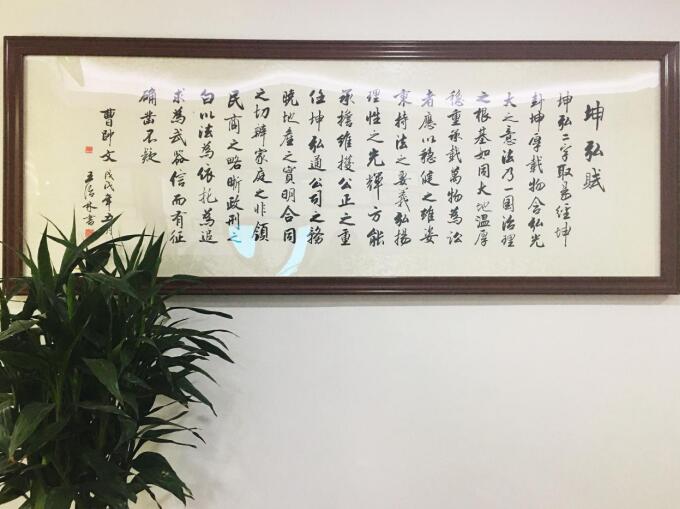 坤弘賦
坤弘二字取易经坤
卦坤厚載物含弘光
大之意法乃一国治理
之根基如同大地温厚
穩重承載萬物為訟
者應以穩健之雄姿
秉持法之要義弘揚
理性之光輝方能
承擔維護公正之重
任坤弘通公司之務
曉地產之實明合同
之切辟家庭之非領
民商之略晰政刑之
白以法為依托為追
求為武器信而有征
确凿不疑
曹帥文 戊戌年五月
王 書